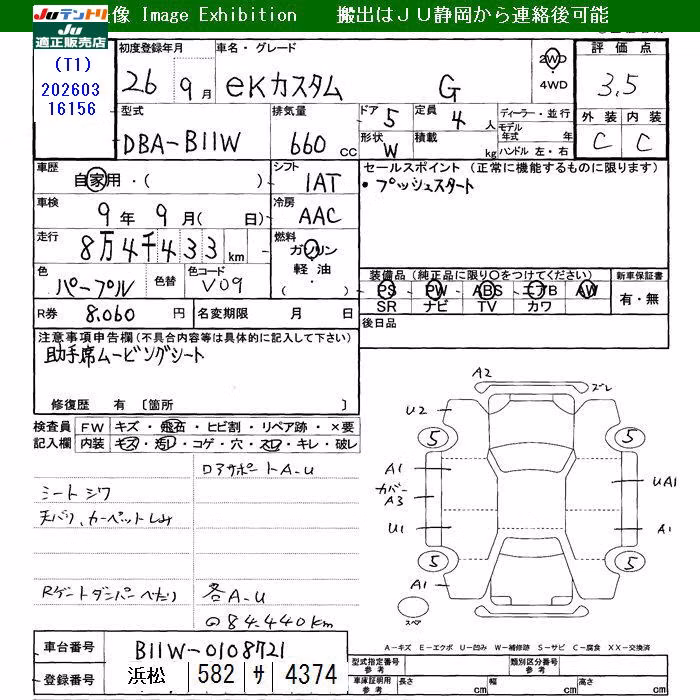 JUテントリ 像 Image Exhibition 搬出はＪＵ静岡から連絡後可能
JU
適正販売店
(T1)
202603
16156
初度登録年月 車名・グレード 評価点
26 9月 eKカスタム G 2WD・4WD 3.5
型式 排気量 ドア 定員 ディーラー・並行 外装 内装
DBA-B11W 660 cc 5 4人 モデル年式 年 C C
形状 積載 ハンドル 左・右
W kg
車歴 シフト セールスポイント (正常に機能するものに限ります)
自家用・( ) IAT ・プッシュスタート
車検 冷房
9年9月( 日) AAC
走行 燃料
8万4千433km ガソリン・軽油・( )
色 色替 色コード 装備品(純正品に限り○をつけてください) 新車保証書
パープル V09 PS PW ABS エアB AW 有・無
SR ナビ TV カワ
R券 8,060円 名変期限 月 日 後日品
注意事項申告欄(不具合内容等は具体的に記入して下さい)
助手席ムービングシート
修復歴 有 〔箇所 〕
検査員 FW キズ・飛石・ヒビ割・リペア跡・×要
記入欄 内装 キズ・汚レ・コゲ・穴・スレ・キレ・破レ
ロアサポートA-U
シートシワ
天バリ、カーペットしみ
Rゲートダンパーへたり 各A-U
◎84.440km
A2 ズレ
U2
5 5
A1
カバー UA1
A3
U1 A1
5 5
A1
スペア
A-キズ E-エクボ U-凹み W-補修跡 S-サビ C-腐食 XX-交換済
車台番号 B11W-0108721
登録番号 浜松 582 サ 4374
型式指定番号 参考 類別区分番号 参考
車庫証明用 参考 長さ cm 幅 cm 高さ cm